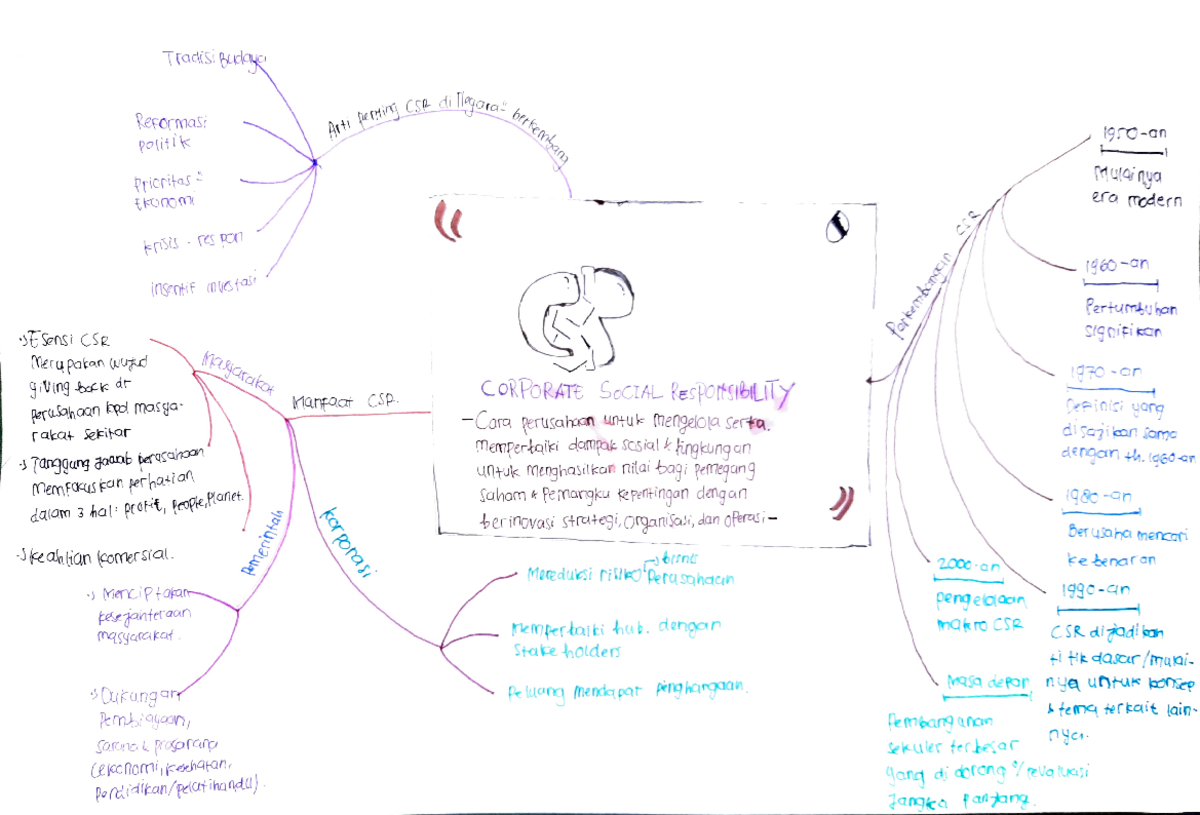 Tradisi Budaya
Reformasi
politik
Prioritas"
Ekonomi
krisis - respon
insentif investasi
Arti penting CSR di Negara" berkembang
CORPORATE SOCIAL RESPONSIBILITY
- Cara perusahaan untuk mengelola serta
memperbaiki dampak sosial & lingkungan
untuk menghasilkan nilai bagi pemegang
saham & Pemangku kepentingan dengan
berinovasi strategi, organisasi, dan operasi -
Manfaat CSR.
Masyarakat
Esensi CSR
Merupakan wujud
giving back dr
perusahaan kpd masya-
rakat sekitar
Tanggung jawab perusahaan
memfokuskan perhatian
dalam 3 hal: profit, People, Planet.
Keahlian komersial.
Pemerintah
Menciptakan
kesejahteraan
masyarakat.
Dukungan
Pembiayaan,
sarana & prasarana
(ekonomi, kesehatan,
Pendidikan/pelatihan
Korporasi
bisnis
Mereduksi risiko Perusahaan
Memperbaiki hub. dengan
Stakeholders
Peluang mendapat penghargaan.
Perkembangan CSR
1950-an
Mulainya
era modern
1960-an
Pertumbuhan
signifikan
1970-an
Definisi yang
disajikan sama
dengan th. 1960-an
1980-an
Berusaha mencari
kebenaran
1990-an
CSR dijadikan
titik dasar/mulai-
nya untuk konsep
& tema terkait lain-
nya.
2000-an
pengelolaan
makro CSR
Masa depan
Pembangunan
sekuler terbesar
yang di dorong
Jangka Panjang.